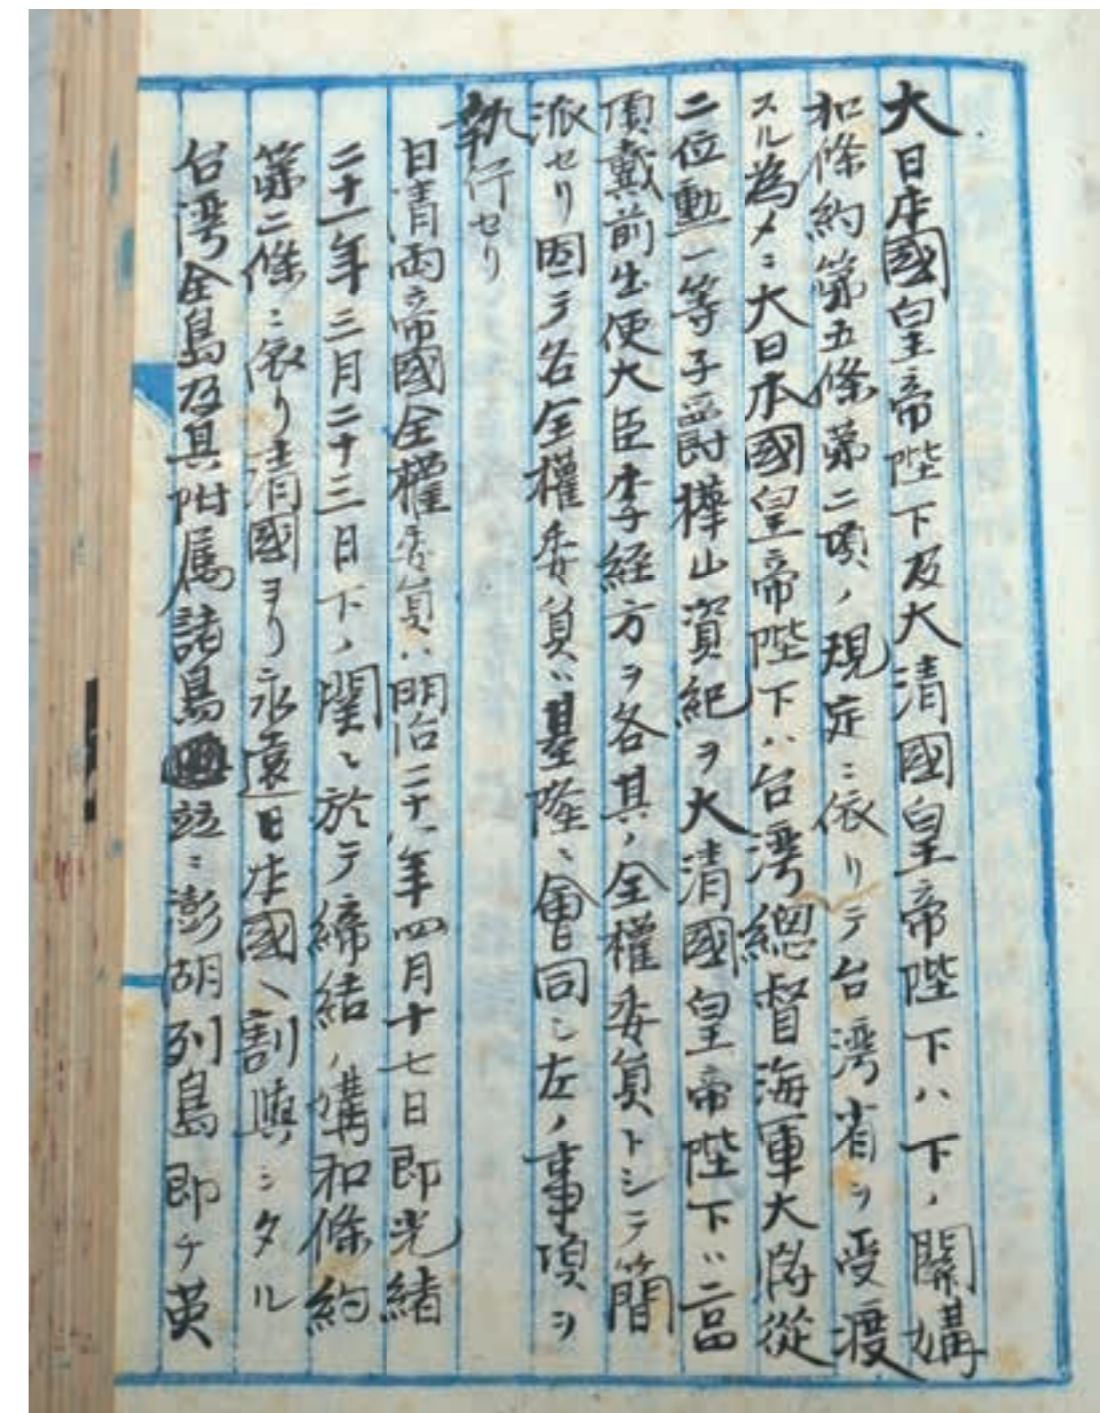 大日本國皇帝陛下及大清國皇帝陛下ハ下ノ關媾
和條約第五條第二項ノ規定ニ依リテ台湾省ヲ受渡
スル為メニ大日本國皇帝陛下ハ台湾總督海軍大将從
二位勳一等子爵樺山資紀ヲ大清國皇帝陛下ハ二品
頂戴前出使大臣李経方ヲ各其ノ全權委員トシテ簡
派セリ因テ各全權委員ハ基隆ニ會同シ左ノ事項ヲ
執行セリ
日清両帝國全權委員ハ明治二十八年四月十七日即光緒
二十一年三月二十三日下ノ関ニ於テ締結ノ媾和條約
第二條ニ依リ清國ヨリ永遠日本國ヘ割與シタル
台湾全島及其附属諸島並ニ澎湖列島即チ英